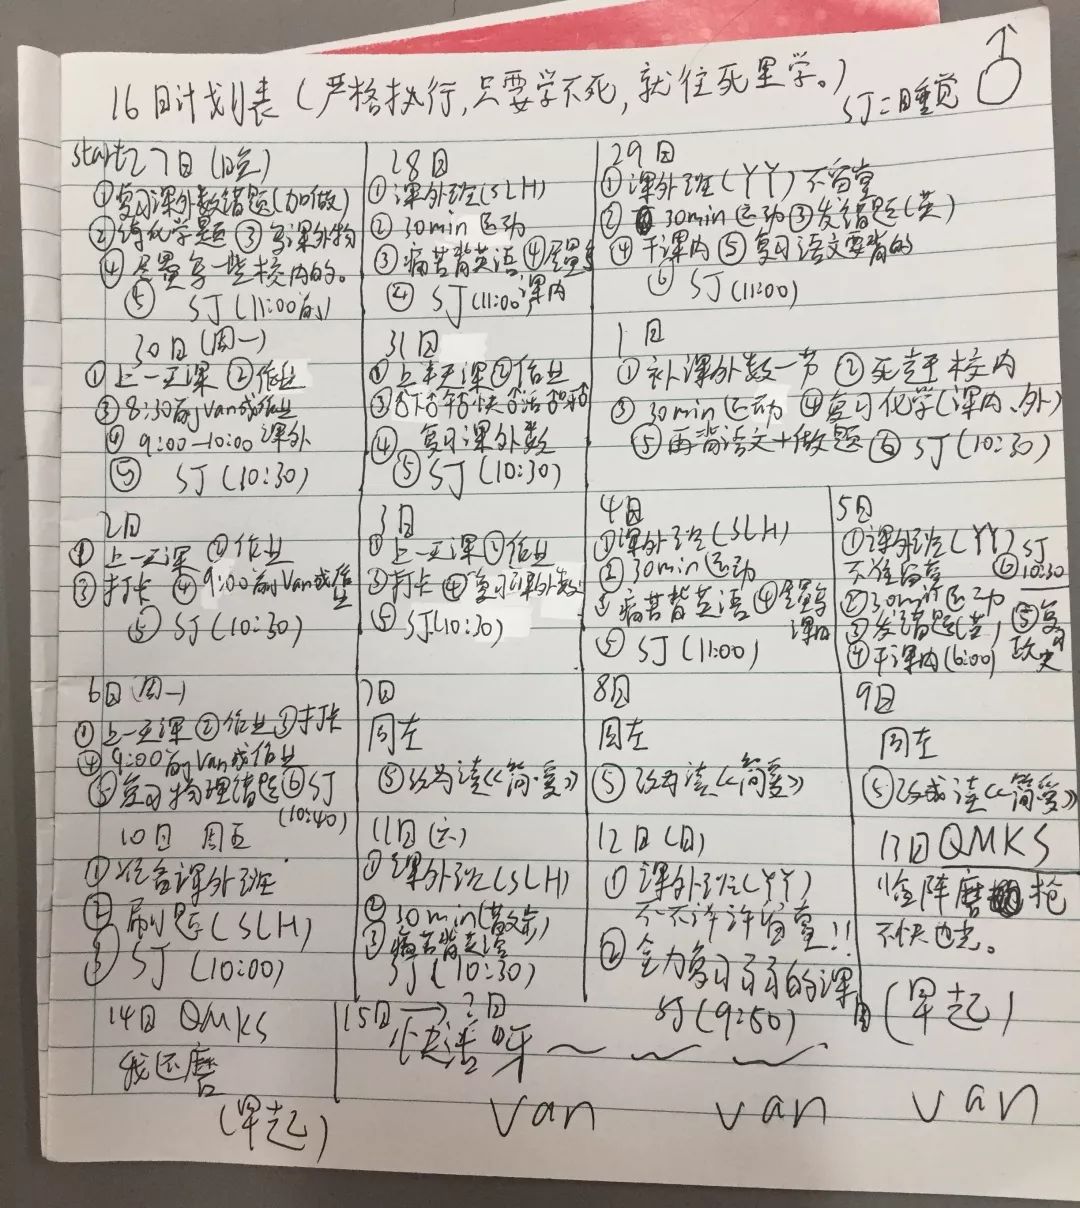 16日计划表(严格执行,只要学不死,就往死里学。)
SJ=睡觉
start 27日(晚)
①复习课外数错题(加做)
②③复课外物
④尽量复一些校内的。
⑤ SJ(11:00前)
28日
①课外班(SLH)
②30min运动
③痛苦背英语④尽量写
课内
④ SJ(11:00
29日
①课外班(YY)不留堂
②30min运动③发错题(英)
④干课内⑤复习语文要背的
⑥ SJ(11:00)
30日(周一)
①上一天课②作业
③8:30前Van成作业
④9:00—10:00课外
⑤ SJ(10:30)
31日
①上半天课②作业
③
④复习课外数
⑤SJ(10:30)
1日
①补课外数一节②死莝校内
③30min运动④复习化学(课内、外)
⑤再背语文+做题⑥SJ(10:30)
2日
①上一天课②作业
③打卡④9:00前Van成作业
⑤SJ(10:30)
3日
①上一天课②作业
③打卡④复习课外数
⑤SJ(10:30)
4日
①课外班(SLH)
②30min运动
③痛苦背英语④尽量写
课内
⑤ SJ(11:00)
5日
①课外班(YY)
不准留堂
②30min运动
③发错题(英)
④干课内(6:00)
⑤复习
政史
⑥SJ
10:30
6日(周一)
①上一天课②作业③打卡
④9:00前Van成作业
⑤复习物理错题⑥SJ
(10:40)
7日
同左
⑤改为读《简·爱》
8日
同左
⑤改为读《简爱》
9日
同左
⑤改成读《简爱》
10日 周五
①准备课外班
②刷题(SLH)
③SJ(10:00)
11日(六)
①课外班(SLH)
②30min(散步)
③痛苦背英语
SJ(10:30)
12日(日)
①课外班(YY)
不不许许留堂!!
②全力复习弱弱的课
SJ(9:50)
13日QMKS
临阵磨枪
不快也光。
(早起)
14日 QMKS
我还磨
(早起)
15日→?日
快活呀~ ~ ~
van van van